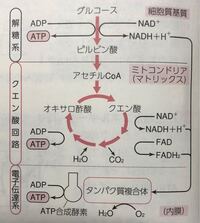 グルコース
細胞質基質
解糖系
ADP
ATP
NAD⁺
NADH+H⁺
ピルビン酸
アセチルCoA
ミトコンドリア
(マトリックス)
クエン酸回路
オキサロ酢酸
クエン酸
ADP
ATP
H₂O
CO₂
NAD⁺
NADH+H⁺
FAD
FADH₂
電子伝達系
ADP
ATP
タンパク質複合体
ATP合成酵素
H₂O
O₂
(内膜)